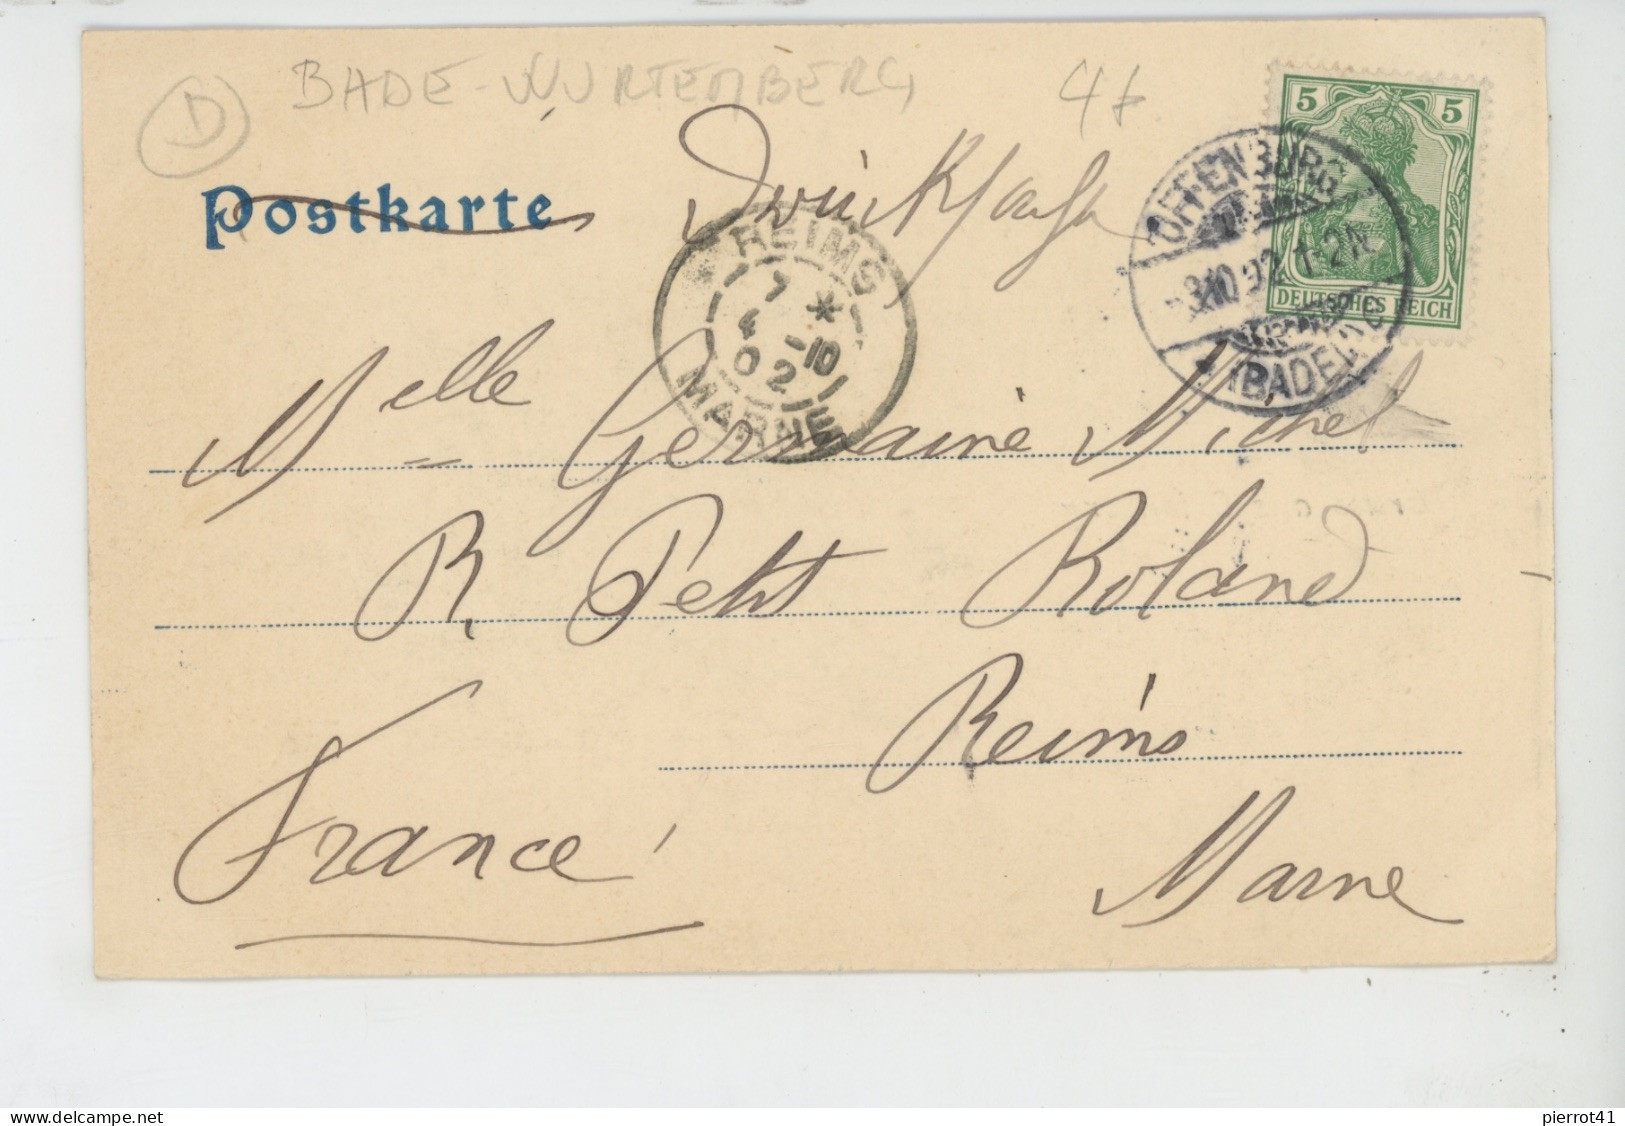 D BADE-WURTEMBERG 4f
Postkarte Drucksache
5 5
DEUTSCHES REICH
OFFENBURG
3.10.02 1-2N
(BADEN)
REIMS
7 * 4 -10 02
MARNE
Melle Germaine Michel
R. Petit Roland
Reims
Marne
France
delcampe.net
pierrot41